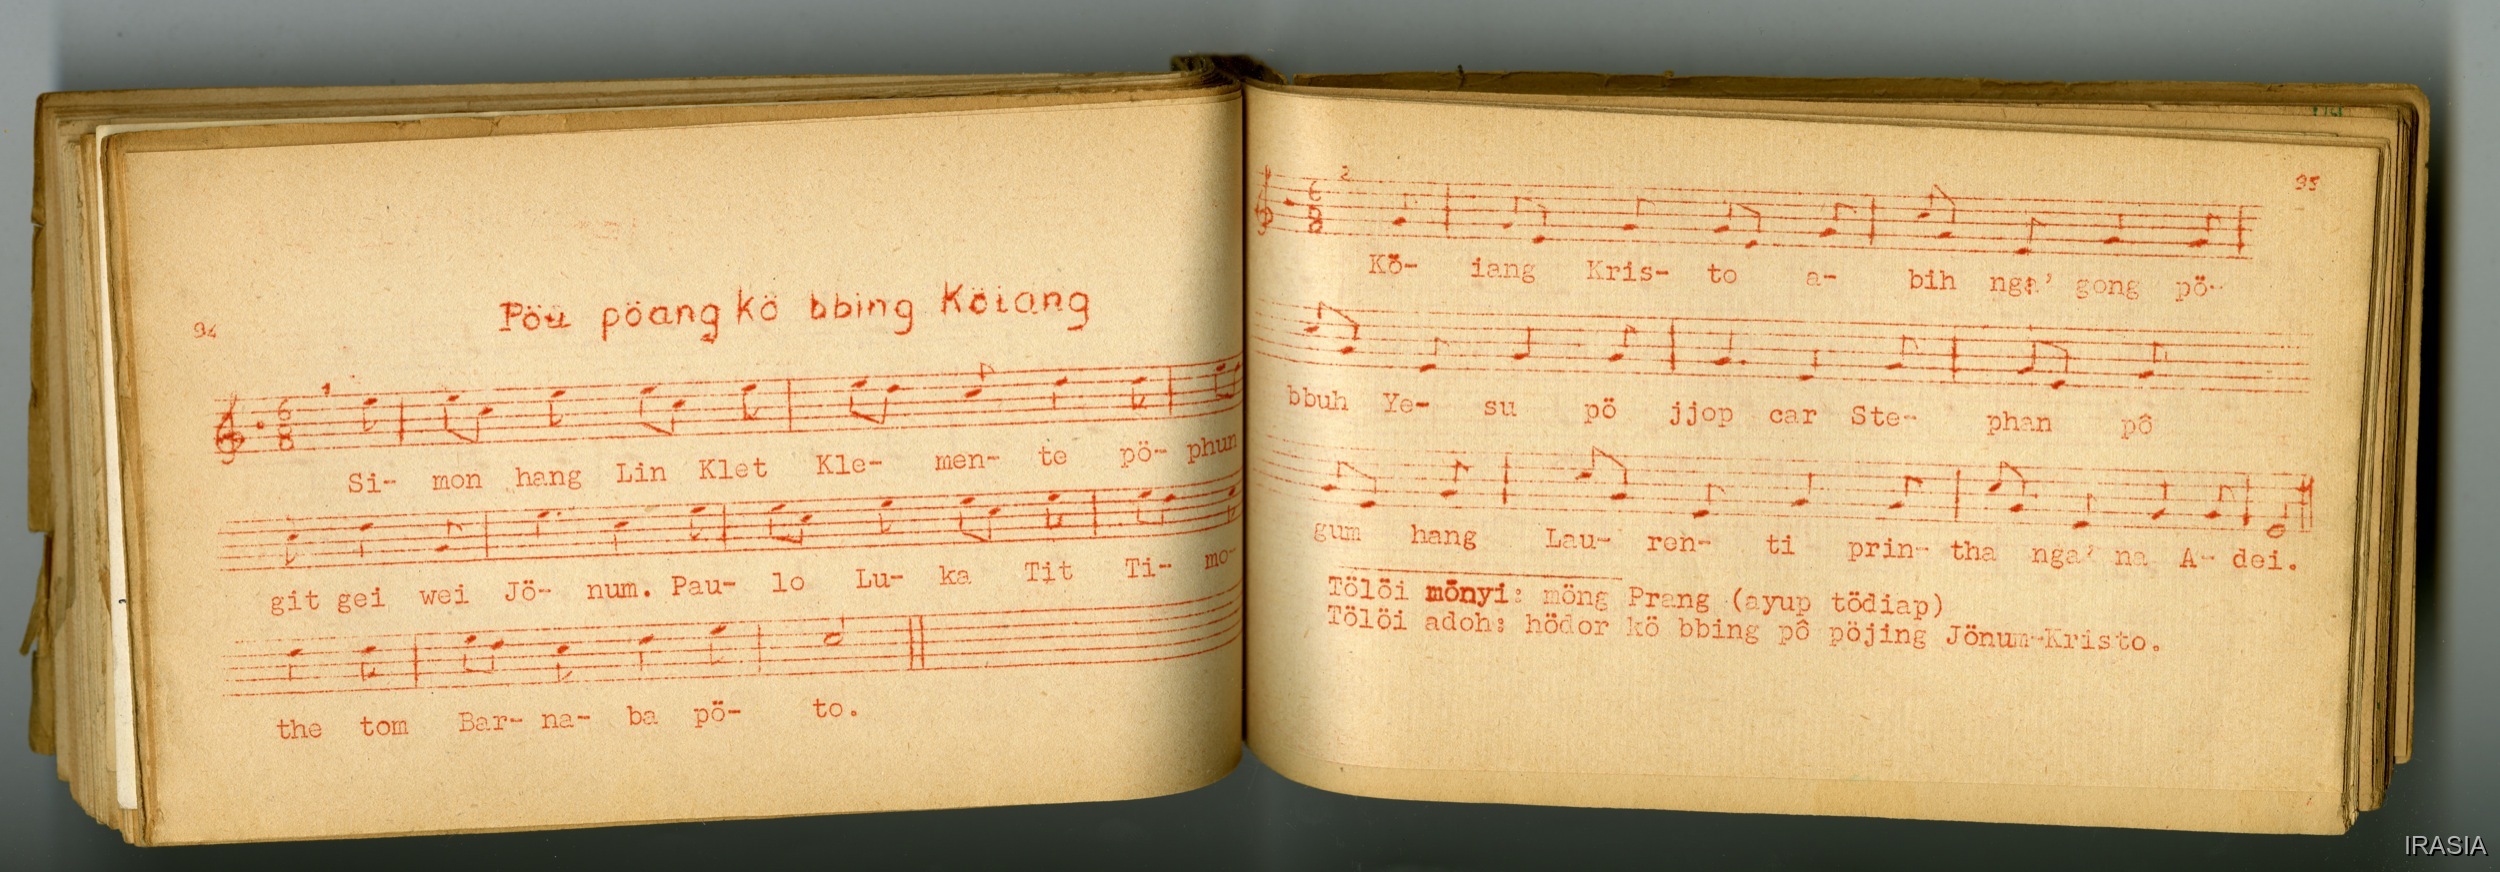 94
Pöu pöang kö bbing Köiang
1
Si- mon hang Lin Klet Kle- men- te pö- phun
git gei wei Jö- num. Pau- lo Lu- ka Tit Ti- mo-
the tom Bar- na- ba pö- to.
95
2
Kö- iang Kris- to a- bih nga' gong pö-
bbuh Ye- su pö jjop car Ste- phan pô
gum hang Lau- ren- ti prin- tha nga' na A- dei.
Tölöi mönyi: möng Prang (ayup tödiap)
Tölöi adoh: hödor kö bbing pô pöjing Jönum-Kristo.
IRASIA